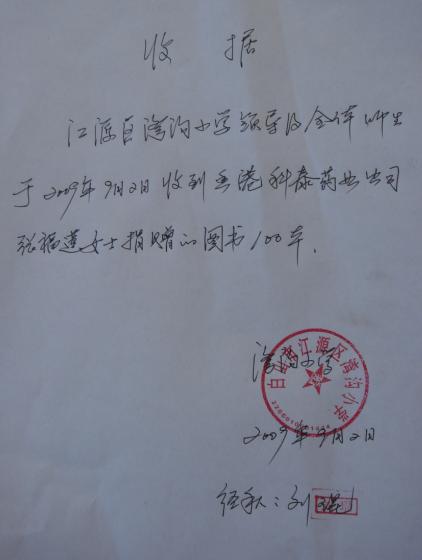 收据
江源区湾沟小学领导及全体师生
于2009年9月2日收到香港科泰药业公司
张福莲女士捐赠的图书100本.
湾沟小学
白山江源区湾沟小学
2009年9月2日
经手人:刘